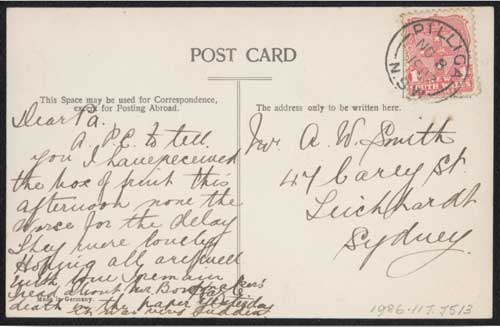 POST CARD
This Space may be used for Correspondence,
except for Posting Abroad.
The address only to be written here.
PILLIGA
NO 8
N.S.W
Dear Pa.
A. P.C. to tell
you I have received
the box of fruit this
afternoon none the
worse for the delay
They were lovely
Hoping all are well
With love I remain
read about Mr
death in the paper
Made in Germany.
Mr. A. W. Smith
47 Carey St.
Leichhardt
Sydney.
1986-117-1513